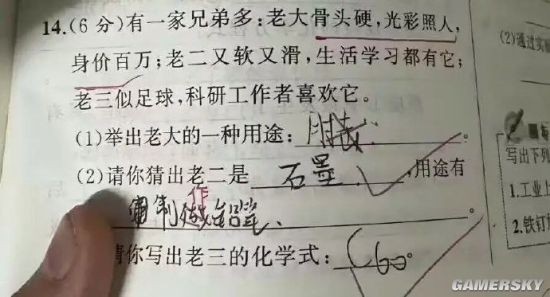 14.(6分)有一家兄弟多:老大骨头硬,光彩照人,
身价百万;老二又软又滑,生活学习都有它;
老三似足球,科研工作者喜欢它。
(1)举出老大的一种用途:
(2)请你猜出老二是 石墨 ,用途有
制做铅笔
作
请你写出老三的化学式: C60。
(2)通过实
写出下列
1.工业上
2.铁钉
GAMERSKY